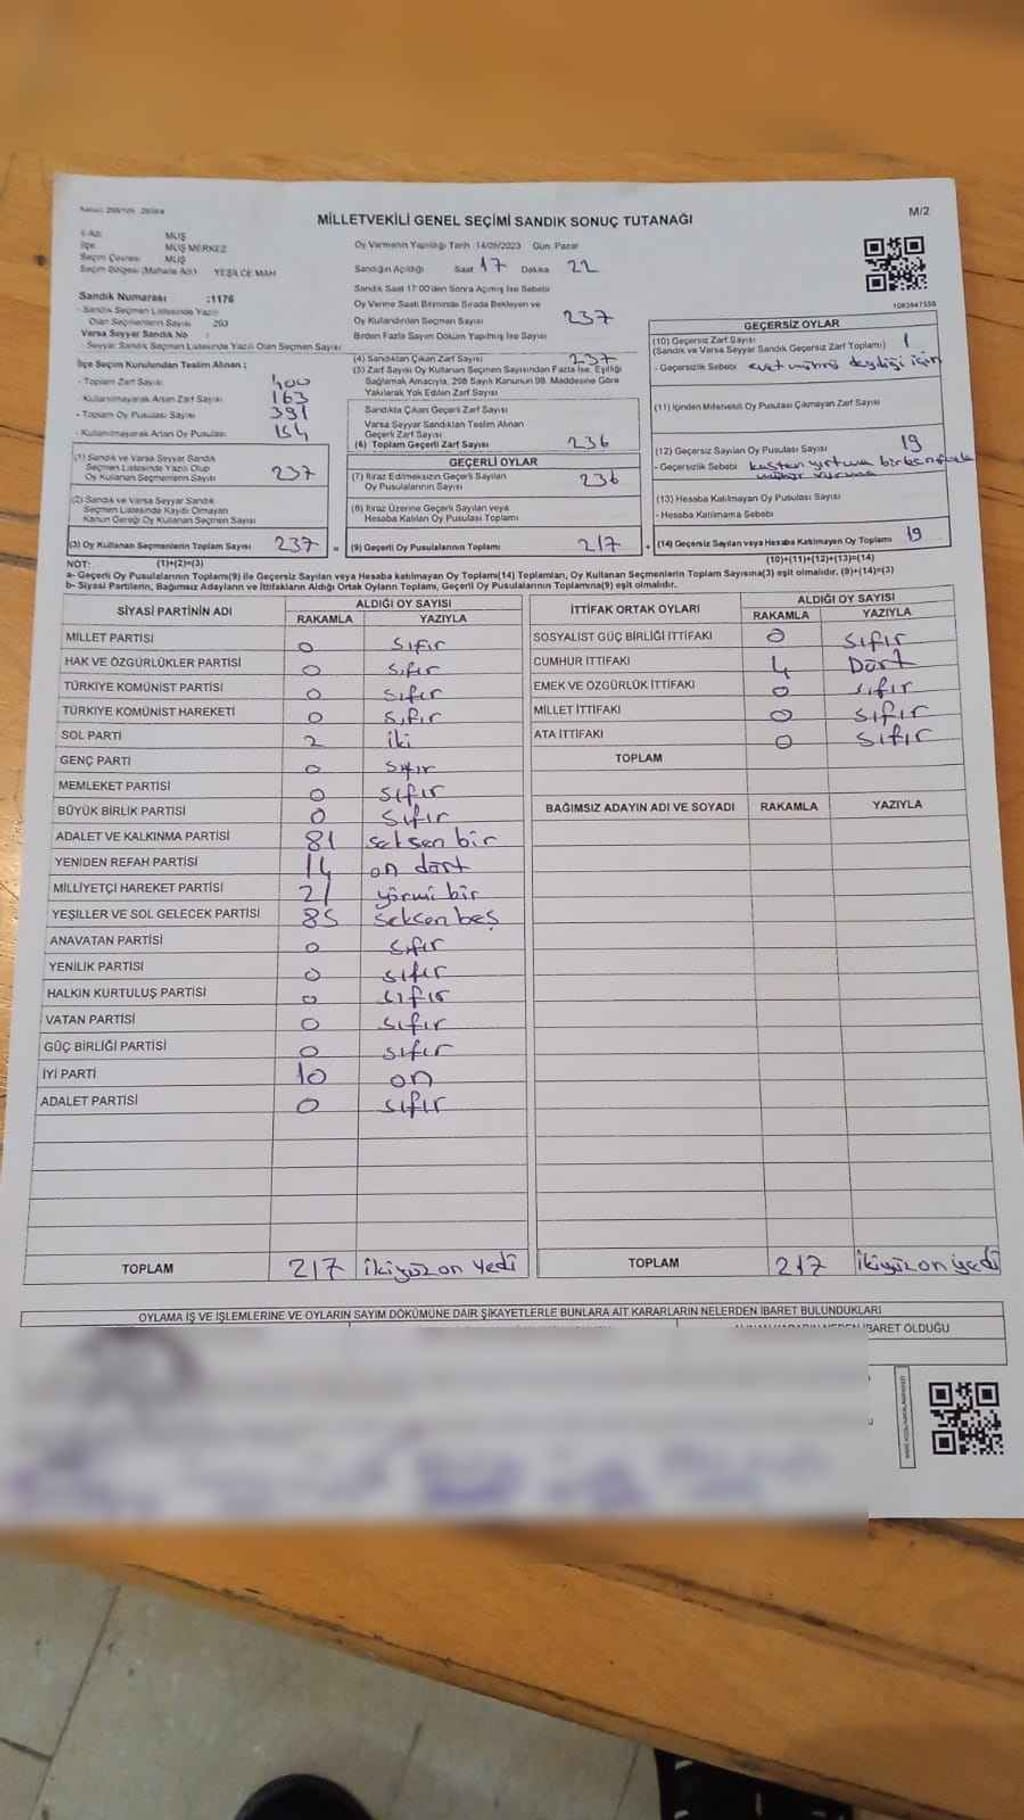 M/2
MİLLETVEKİLİ GENEL SEÇİMİ SANDIK SONUÇ TUTANAĞI
MUŞ
İlçe MUŞ MERKEZ
Seçim Çevresi MUŞ
Seçim Bölgesi (Mahalle Adı) YEŞİLCE MAH
Sandık Numarası :1176
- Sandık Seçmen Listesinde Yazılı
Olan Seçmenlerin Sayısı 263
Varsa Seyyar Sandık No :
Seyyar Sandık Seçmen Listesinde Yazılı Olan Seçmen Sayısı
İlçe Seçim Kurulundan Teslim Alınan ;
- Toplam Zarf Sayısı 400
- Kullanılmayarak Artan Zarf Sayısı 163
- Toplam Oy Pusulası Sayısı 391
- Kullanılmayarak Artan Oy Pusulası 154
(1) Sandık ve Varsa Seyyar Sandık
Seçmen Listesinde Yazılı Olup
Oy Kullanan Seçmenlerin Sayısı 237
(2) Sandık ve Varsa Seyyar Sandık
Seçmen Listesinde Kaydı Olmayan
Kanun Gereği Oy Kullanan Seçmen Sayısı
(3) Oy Kullanan Seçmenlerin Toplam Sayısı 237 =
Oy Vermenin Yapıldığı Tarih :14/05/2023 Gün: Pazar
Sandığın Açıldığı Saat 17 Dakika 22
Sandık Saat 17:00'den Sonra Açılmış İse Sebebi
Oy Verme Saati Bitiminde Sırada Bekleyen ve
Oy Kullandırılan Seçmen Sayısı 237
Birden Fazla Sayım Döküm Yapılmış İse Sayısı
(4) Sandıktan Çıkan Zarf Sayısı 237
(5) Zarf Sayısı Oy Kullanan Seçmen Sayısından Fazla İse, Eşitliği
Sağlamak Amacıyla, 298 Sayılı Kanunun 98. Maddesine Göre
Yakılarak Yok Edilen Zarf Sayısı
Sandıkta Çıkan Geçerli Zarf Sayısı
Varsa Seyyar Sandıktan Teslim Alınan
Geçerli Zarf Sayısı
(6) Toplam Geçerli Zarf Sayısı 236
GEÇERLİ OYLAR
(7) İtiraz Edilmeksizin Geçerli Sayılan
Oy Pusulalarının Sayısı 236
(8) İtiraz Üzerine Geçerli Sayılan veya
Hesaba Katılan Oy Pusulası Toplamı
(9) Geçerli Oy Pusulalarının Toplamı 217 +
1083947550
GEÇERSİZ OYLAR
(10) Geçersiz Zarf Sayısı
(Sandık ve Varsa Seyyar Sandık Geçersiz Zarf Toplamı) 1
- Geçersizlik Sebebi evet mührü değdiği için
(11) İçinden Milletvekili Oy Pusulası Çıkmayan Zarf Sayısı
(12) Geçersiz Sayılan Oy Pusulası Sayısı 19
- Geçersizlik Sebebi kasten yırtma
(13) Hesaba Katılmayan Oy Pusulası Sayısı
- Hesaba Katılmama Sebebi
(14) Geçersiz Sayılan veya Hesaba Katılmayan Oy Toplamı 19
NOT: (1)+(2)=(3) (10)+(11)+(12)+(13)=(14)
a- Geçerli Oy Pusulalarının Toplamı(9) ile Geçersiz Sayılan veya Hesaba katılmayan Oy Toplamı(14) Toplamları, Oy Kullanan Seçmenlerin Toplam Sayısına(3) eşit olmalıdır. (9)+(14)=(3)
b- Siyasi Partilerin, Bağımsız Adayların ve İttifakların Aldığı Ortak Oyların Toplamı, Geçerli Oy Pusulalarının Toplamına(9) eşit olmalıdır.
SİYASİ PARTİNİN ADI ALDIĞI OY SAYISI
RAKAMLA YAZIYLA
MİLLET PARTİSİ 0 sıfır
HAK VE ÖZGÜRLÜKLER PARTİSİ 0 sıfır
TÜRKİYE KOMÜNİST PARTİSİ 0 sıfır
TÜRKİYE KOMÜNİST HAREKETİ 0 sıfır
SOL PARTİ 2 iki
GENÇ PARTİ 0 sıfır
MEMLEKET PARTİSİ 0 sıfır
BÜYÜK BİRLİK PARTİSİ 0 sıfır
ADALET VE KALKINMA PARTİSİ 81 seksen bir
YENİDEN REFAH PARTİSİ 14 on dört
MİLLİYETÇİ HAREKET PARTİSİ 21 yörmi bir
YEŞİLLER VE SOL GELECEK PARTİSİ 85 seksen beş
ANAVATAN PARTİSİ 0 sıfır
YENİLİK PARTİSİ 0 sıfır
HALKIN KURTULUŞ PARTİSİ 0 sıfır
VATAN PARTİSİ 0 sıfır
GÜÇ BİRLİĞİ PARTİSİ 0 sıfır
İYİ PARTİ 10 on
ADALET PARTİSİ 0 sıfır
TOPLAM 217 ikiyüz on yedi
İTTİFAK ORTAK OYLARI ALDIĞI OY SAYISI
RAKAMLA YAZIYLA
SOSYALİST GÜÇ BİRLİĞİ İTTİFAKI 0 sıfır
CUMHUR İTTİFAKI 4 Dört
EMEK VE ÖZGÜRLÜK İTTİFAKI 0 sıfır
MİLLET İTTİFAKI 0 sıfır
ATA İTTİFAKI 0 sıfır
TOPLAM
BAĞIMSIZ ADAYIN ADI VE SOYADI RAKAMLA YAZIYLA
TOPLAM 217 ikiyüz on yedi
OYLAMA İŞ VE İŞLEMLERİNE VE OYLARIN SAYIM DÖKÜMÜNE DAİR ŞİKAYETLERLE BUNLARA AİT KARARLARIN NELERDEN İBARET BULUNDUKLARI
İBARET OLDUĞU